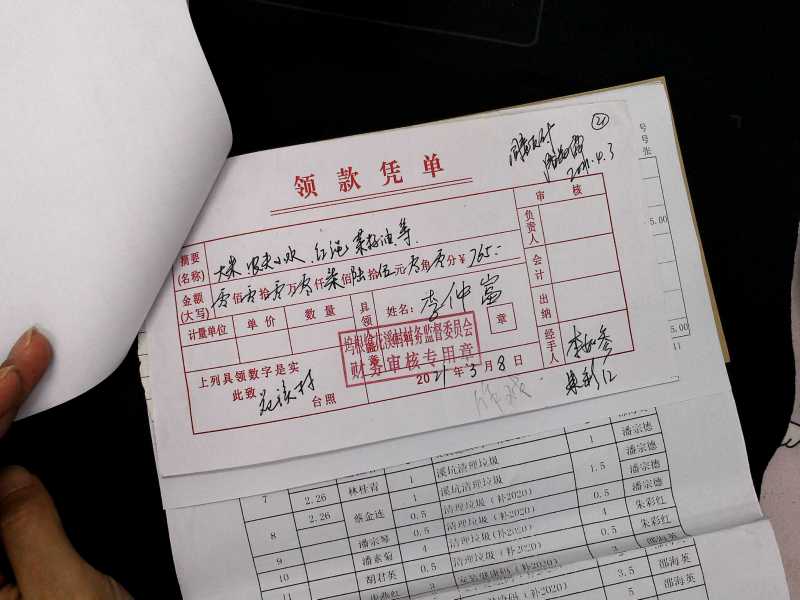 21
2021.4.3
领款凭单
摘要(名称) 大米 农夫小水 红绳 菜籽油等
审核
负责人
会计
出纳
经手人
金额(大写) 零佰零拾零万零仟柒佰陆拾伍元零角零分¥765.-
计量单位 单价 数量
具领
姓名: 李仲富
章
村务监督委员会
财务审核专用章
上列具领数字是实
此致
台照
2021年3月8日
号
号
张
5.00
5.00
11
7 2.26 林桂青 1 溪坑清理垃圾 1 潘宗德
8 2.26 蔡金连 1 溪坑清理垃圾 1.5 潘宗德
0.5 清理垃圾(补2020) 0.5 潘宗德
潘宗琴 0.5 清理垃圾(补2020) 4 朱彩红
9 潘素菊 4 清理垃圾(补2020) 0.5 朱彩红
10 胡君英 0.5 清理垃圾(补2020) 邵海英
11 3.5 邵海英
5 邵海英